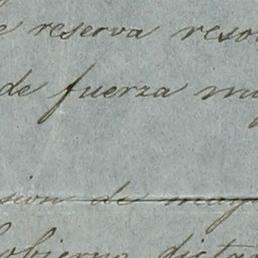 e reserva reso
de fuerza ma
sion de may
obierno dicta